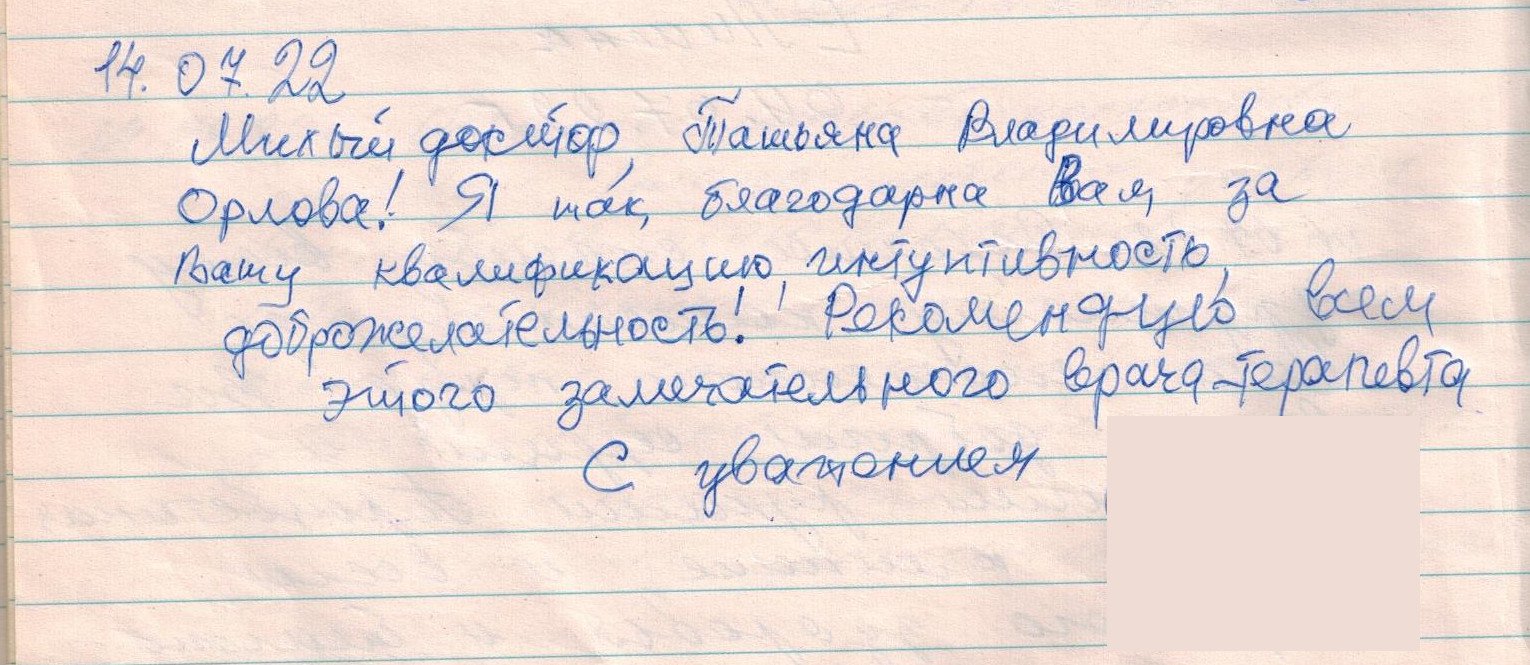 14.07.22
Милый доктор, Татьяна Владимировна
Орлова! Я так благодарна Вам за
Вашу квалификацию, интуитивность,
доброжелательность! Рекомендую всем
этого замечательного врача-терапевта
С уважением